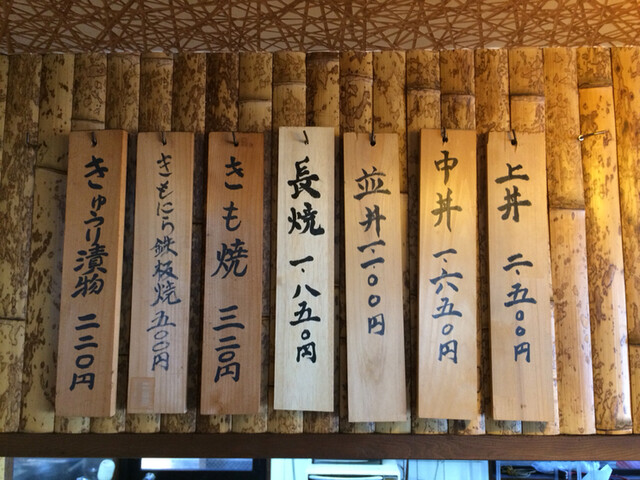 上丼 二.五〇〇円
中丼 一.六五〇円
並丼 一.一〇〇円
長焼 一.八五〇円
きも焼 三二〇円
きもにら鉄板焼 五〇〇円
きゅうり漬物 二二〇円